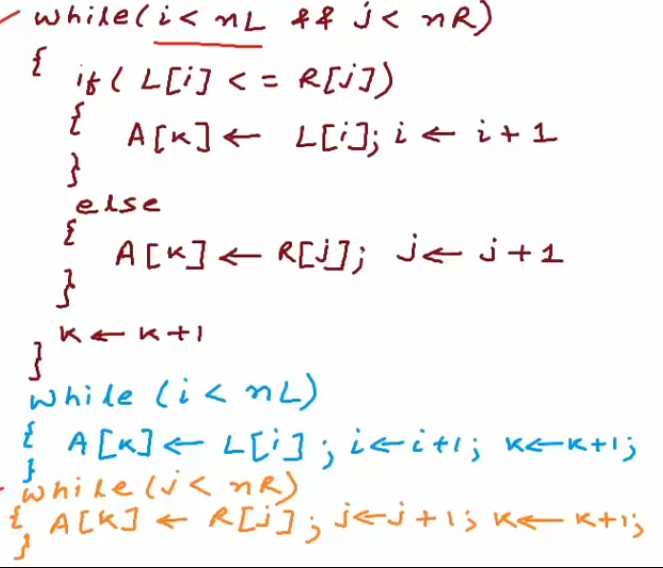 while(i < nL && j < nR)
{
if( L[i] <= R[j])
{
A[k] ← L[i]; i ← i+1
}
else
{
A[k] ← R[j]; j ← j+1
}
k ← k+1
}
while (i < nL)
{ A[k] ← L[i]; i←i+1; k←k+1;
}
while (j < nR)
{ A[k] ← R[j]; j←j+1; k← k+1;
}